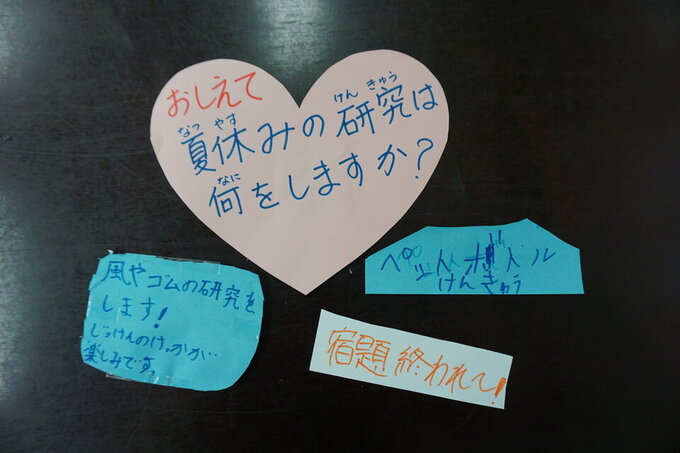 おしえて
夏休みの研究は
何をしますか?
風やゴムの研究を
します!
じっけんのけっかが
楽しみです。
ペットボトル
けんきゅう
宿題終われて!